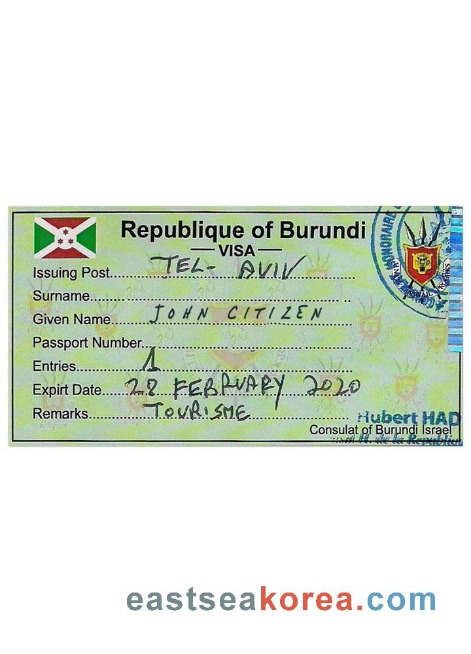 Republique of Burundi
VISA
Issuing Post TEL-AVIV
Surname
Given Name JOHN CITIZEN
Passport Number
Entries 1
Expirt Date 28 FEBRUARY 2020
Remarks TOURISME
Hubert HAD
Consulat of Burundi Israel
H. de la Republiq
HONORAIRE
eastseakorea.com